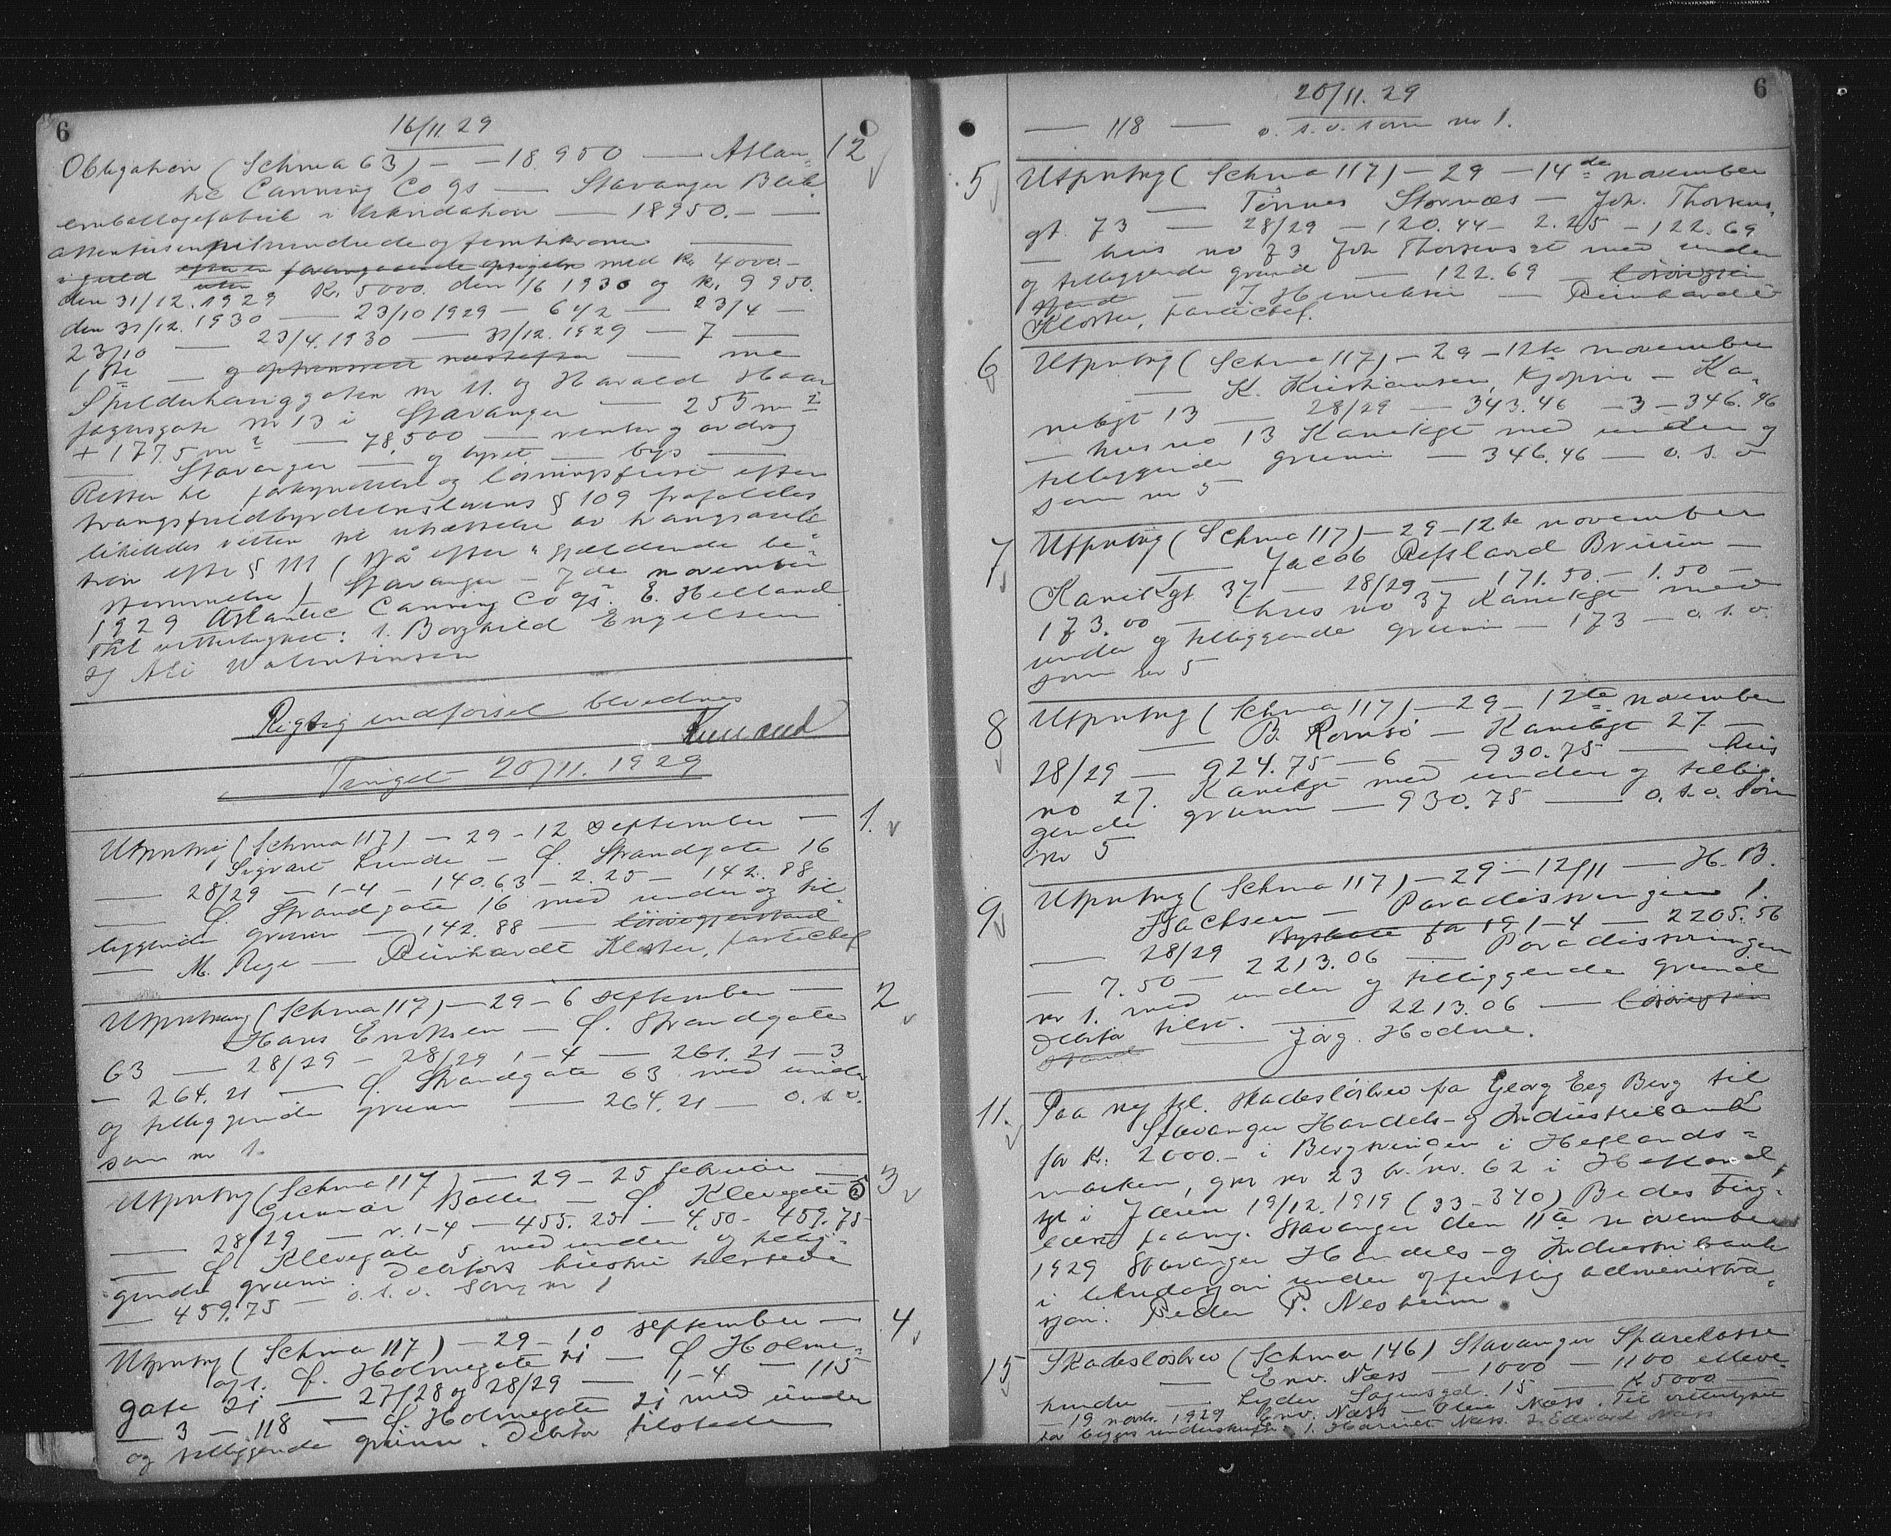 6
16/11 29
Obligation (Schma 63) — — 18 950 — Atlan- 12
tic Canning Co ys — Stavanger Blik
emballagefabrik i likvidation — 18950.— —
attentusennihundrede og femtikroner —
i guld med kr 4000.—
den 31/12. 1929 Kr. 5000. den 1/6 1930 og kr. 9 950.
den 31/12. 1930 — 23/10 1929 — 6 1/2 — 23/4 —
23/10 — 23/4. 1930 — 31/12. 1929 — 7 —
1ste — og — me
Spilderhauggaten nr 11. og Harald Haar
fagersgate nr 13 i Stavanger — 255 m2
+ 177.5 m2 — 78,500 — renter og avdrag
— Stavanger — og byret — bys —
Retten til forkyndelse og løsningsfrist efter
tvangsfuldbyrdelseslovens § 109 frafaldes
likeledes retten til utsættelse av tvangsauk-
tion efter § 111 (stå efter gjældende be-
stemmelse) Stavanger — 7de november
1929 Atlantic Canning Co ys. E. Helland.
Til vitterlighet: 1. Borghild Engelsen
2) Ali Valentinsen
Rigtig indførsel bevidnes
Tinget 20/11. 1929
Utpntng (Schma 117) — 29 — 12 september — 1.
Sigvart Lunde — Ø. Strandgate 16
— 28/29 — 1-4 — 140.63 — 2.25 — 142.88
— Ø. Strandgate 16 med under og til-
liggende grunn — 142.88 — løsøregjenstand
— M. Rege — Reinhardt Kloster, pantechef
Utpntnng (Schma 117) — 29 — 6 september — 2
Hans Eriksen — Ø. Strandgate
63 — 28/29 — 28/29 1-4 — 261.21 — 3
— 264.21 — Ø. Strandgate 63 med under
og tilliggende grunn — 264.21 — o. s. v.
som nr 1.
Utpntng (Schma 117) — 29 — 25 februar — 3
Gunnar Balle — Ø. Klevegate 5
— 28/29 — r. 1-4 — 455.25 — 4.50 — 459.75
— Ø. Klevegate 5 med under og tillig-
gende grunn. Debitors hustru tilstede
— 459.75 — o. s. v. som nr 1
Utpntng (Schma 117) — 29 — 10 september — 4
Ø. Holmegate 21 — Ø Holme-
gate 21 — 27/28 og 28/29 — 1-4 — 115
— 3 — 118 — Ø. Holmegate 21 med under
og tilliggende grunn. Debitor tilstede
20/11. 29 6
— 118 — o. s. v. som nr 1.
5 Utpntng (Schma 117) — 29 — 14de november
— Tønnes Stornæs — Joh. Thorsens
gt. 73 — 28/29 — 120.44 — 2.25 — 122.69
— hus no 73 Joh Thorsens gt med under
og tilliggende grund — 122.69 — løsøregjen
stand — J Henriksen — Reinhardt
Kloster, pantechef.
6 Utpntng (Schma 117) — 29 — 12te november
— K. Kristiansen, Kjøpm — Ka-
nikgt 13 — 28/29 — 343.46 — 3 — 346.46
— hus no 13 Kanikgt med under og
tilliggende grunn — 346.46 — o. s. v
som nr 5
7 Utpntng (Schma 117) — 29 — 12te november
— Jacob Refsland Bruun —
Kanikgt 37 — 28/29 — 171.50 — 1.50 —
173.00 — hus no 37 Kanikgt med
under og tilliggende grunn — 173 — o. s. v.
som nr 5
8 Utpntng (Schma 117) — 29 — 12te november
— B. Romsø — Kanikgt 27 —
28/29 — 924.75 — 6 — 930.75 — hus
no 27 Kanikgt med under og tillig-
gende grunn — 930.75 — o. s. v. som
nr 5
9 Utpntng (Schma 117) — 29 — 12/11 — H. B.
Isachsen — Paradissvingen 1.
— 28/29 Byskatt for 19 1-4 — 2205.56
— 7.50 — 2213.06 — Paradissvingen
nr 1. med under og tilliggende grund
Debitor tilst. — 2213.06 — løsøregjen
stand — Jørg. Hodne.
11. Paa ny tgl. skadesløsbrev fra Georg Eeg Berg til
Stavanger Handels- og Industribank
for kr. 2000.— i Bergsvingen i Hetlands-
marken, gnr nr 23 br. nr. 62 i Hetland,
tgl i Jæren 19/12. 1919 (33-340) Bedes ting-
læst paany. Stavanger den 11te november
1929 Stavanger Handels- og Industribank
i likvidasjon under offentlig administra-
sjon. Peder P. Nesheim.
15 Skadesløsbrev (Schma 146) Stavanger Sparekasse
— Env. Næss — 1000 — 1100 elleve-
hundre — Lyder Sagensgd. 15 — K 5000 —
— 19 novbr. 1929 Env. Næss — Oline Næss. Til vitterlighet
for begges underskrift. 1. Harriet Næss 2. Edvard Næss